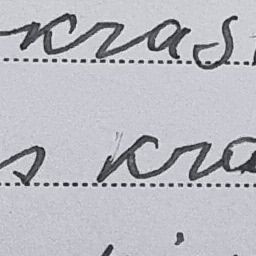 kras
s kra